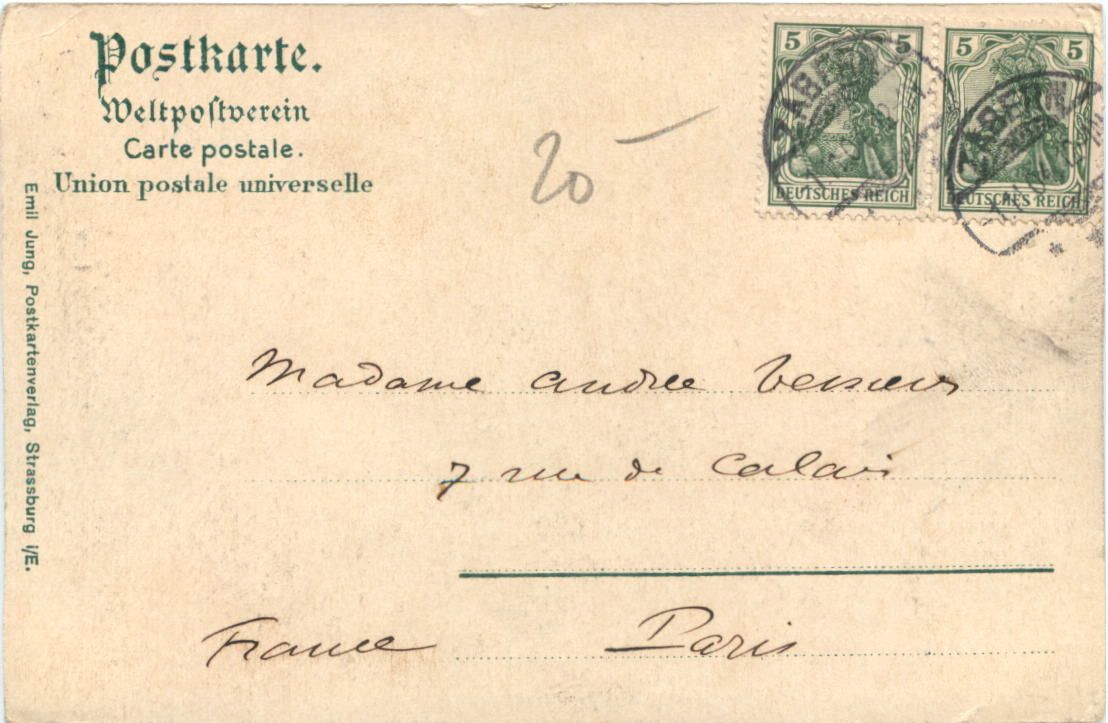 Postkarte.
Weltpostverein
Carte postale.
Union postale universelle
Emil Jung, Postkartenverlag, Strassburg i/E.
20
5 5
DEUTSCHES REICH
5 5
DEUTSCHES REICH
ZABERN
ZABERN
Madame Andrée
7 rue de Calais
France Paris